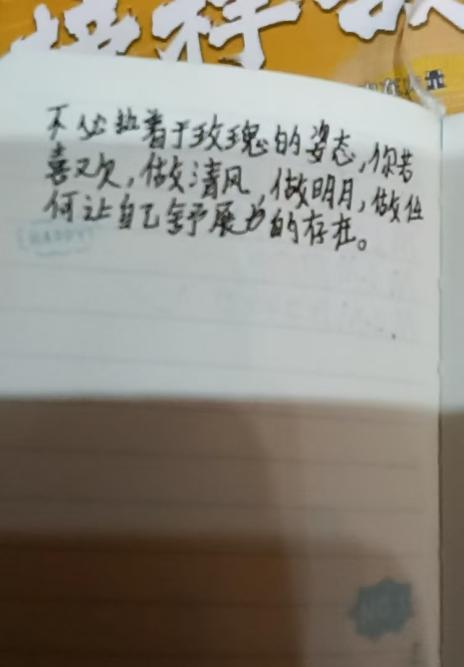 不必执着于玫瑰的姿态,你若
喜欢,做清风,做明月,做任
何让自己舒展的存在。
HAPPY